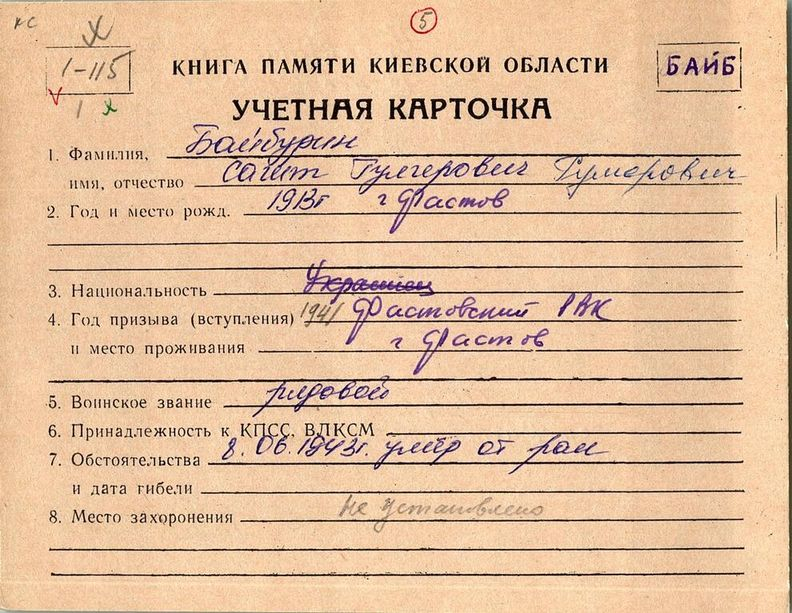 КС
5
1-115
1
КНИГА ПАМЯТИ КИЕВСКОЙ ОБЛАСТИ
БАЙБ
УЧЕТНАЯ КАРТОЧКА
1. Фамилия, Байбурин
имя, отчество Сагит Гулгерович Гумерович
2. Год и место рожд. 1913г г Фастов
3. Национальность Украинец
4. Год призыва (вступления) 1941 Фастовский РВК
и место проживания г Фастов
5. Воинское звание рядовой
6. Принадлежность к КПСС, ВЛКСМ
7. Обстоятельства 8.06.1943г. умер от ран
и дата гибели
8. Место захоронения не установлено